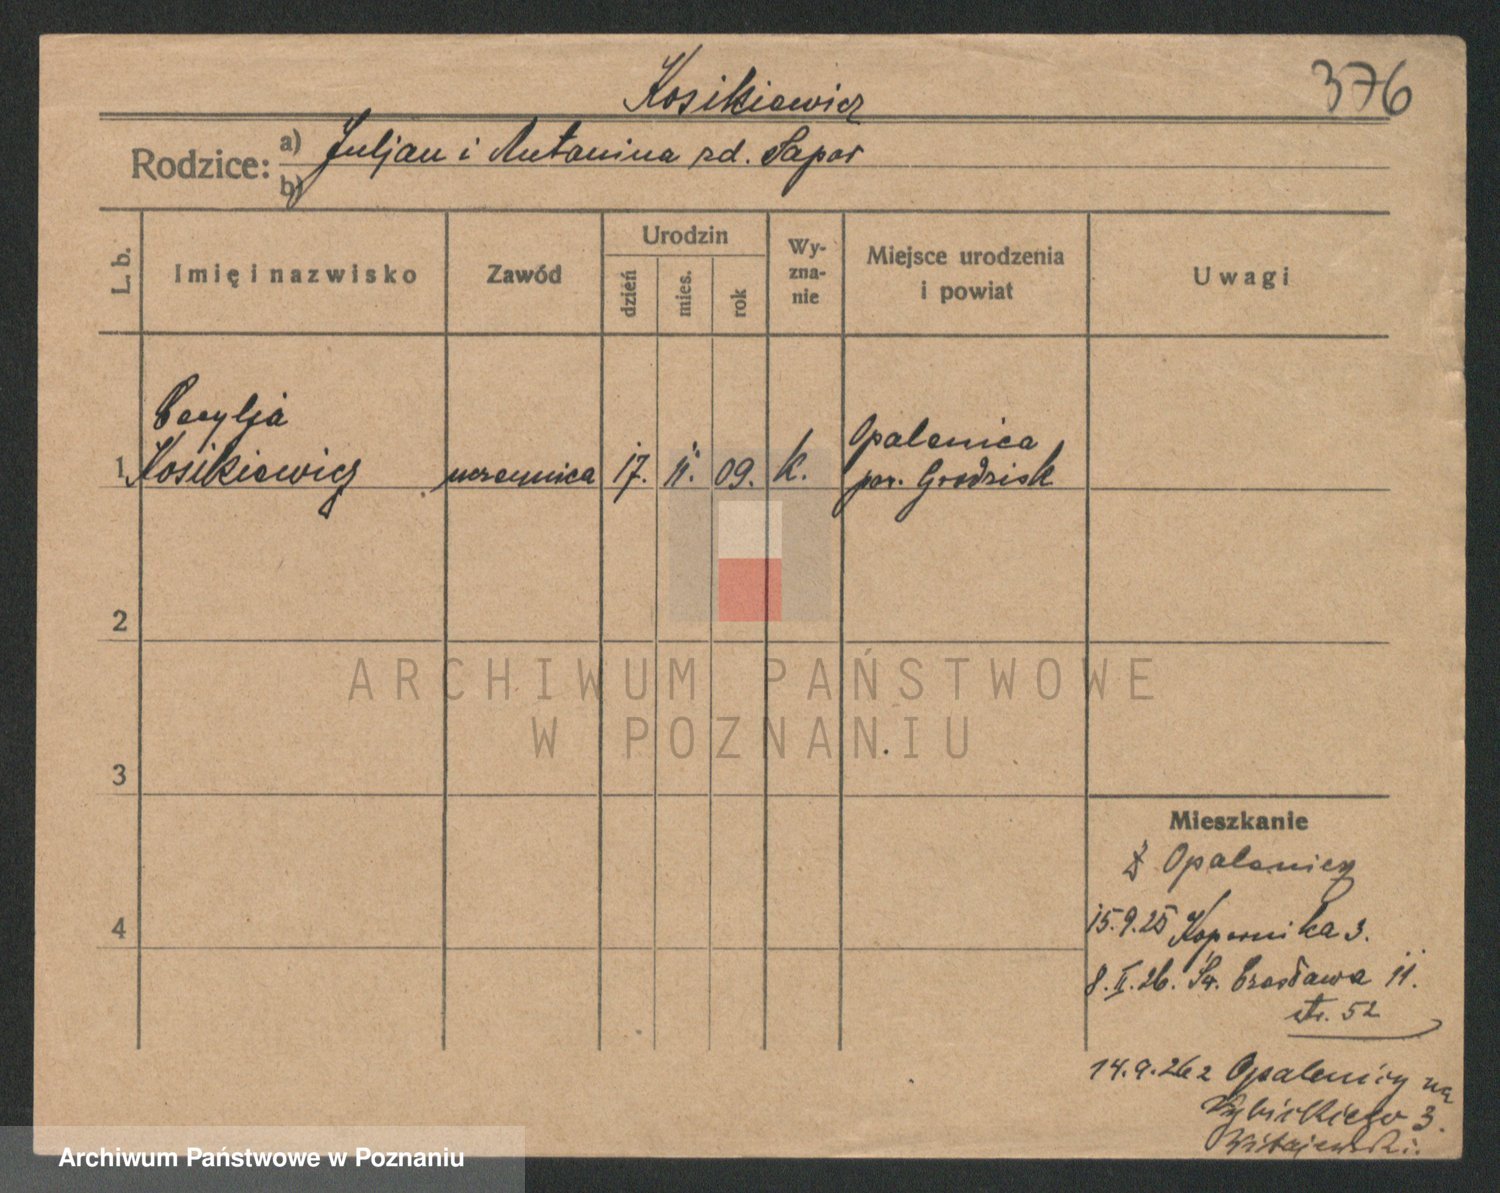 Kosikiewicz
376
Rodzice: a) Juljan i Antonina zd. Sapor
b)
L. b.
Imię i nazwisko
Zawód
Urodzin
dzień
mies.
rok
Wy-
zna-
nie
Miejsce urodzenia
i powiat
Uwagi
Cecylja
1 Kosikiewicz uczennica 17. 11. 09. k. Opalenica
pow. Grodzisk
2
3
4
ARCHIWUM PAŃSTWOWE
W POZNANIU
Mieszkanie
Z Opalenicy
15.9.25 Kopernika 3.
8.II.26. Św. Czesława 11.
str. 52
14.9.26 z Opalenicy na
Wybickiego 3.
Archiwum Państwowe w Poznaniu